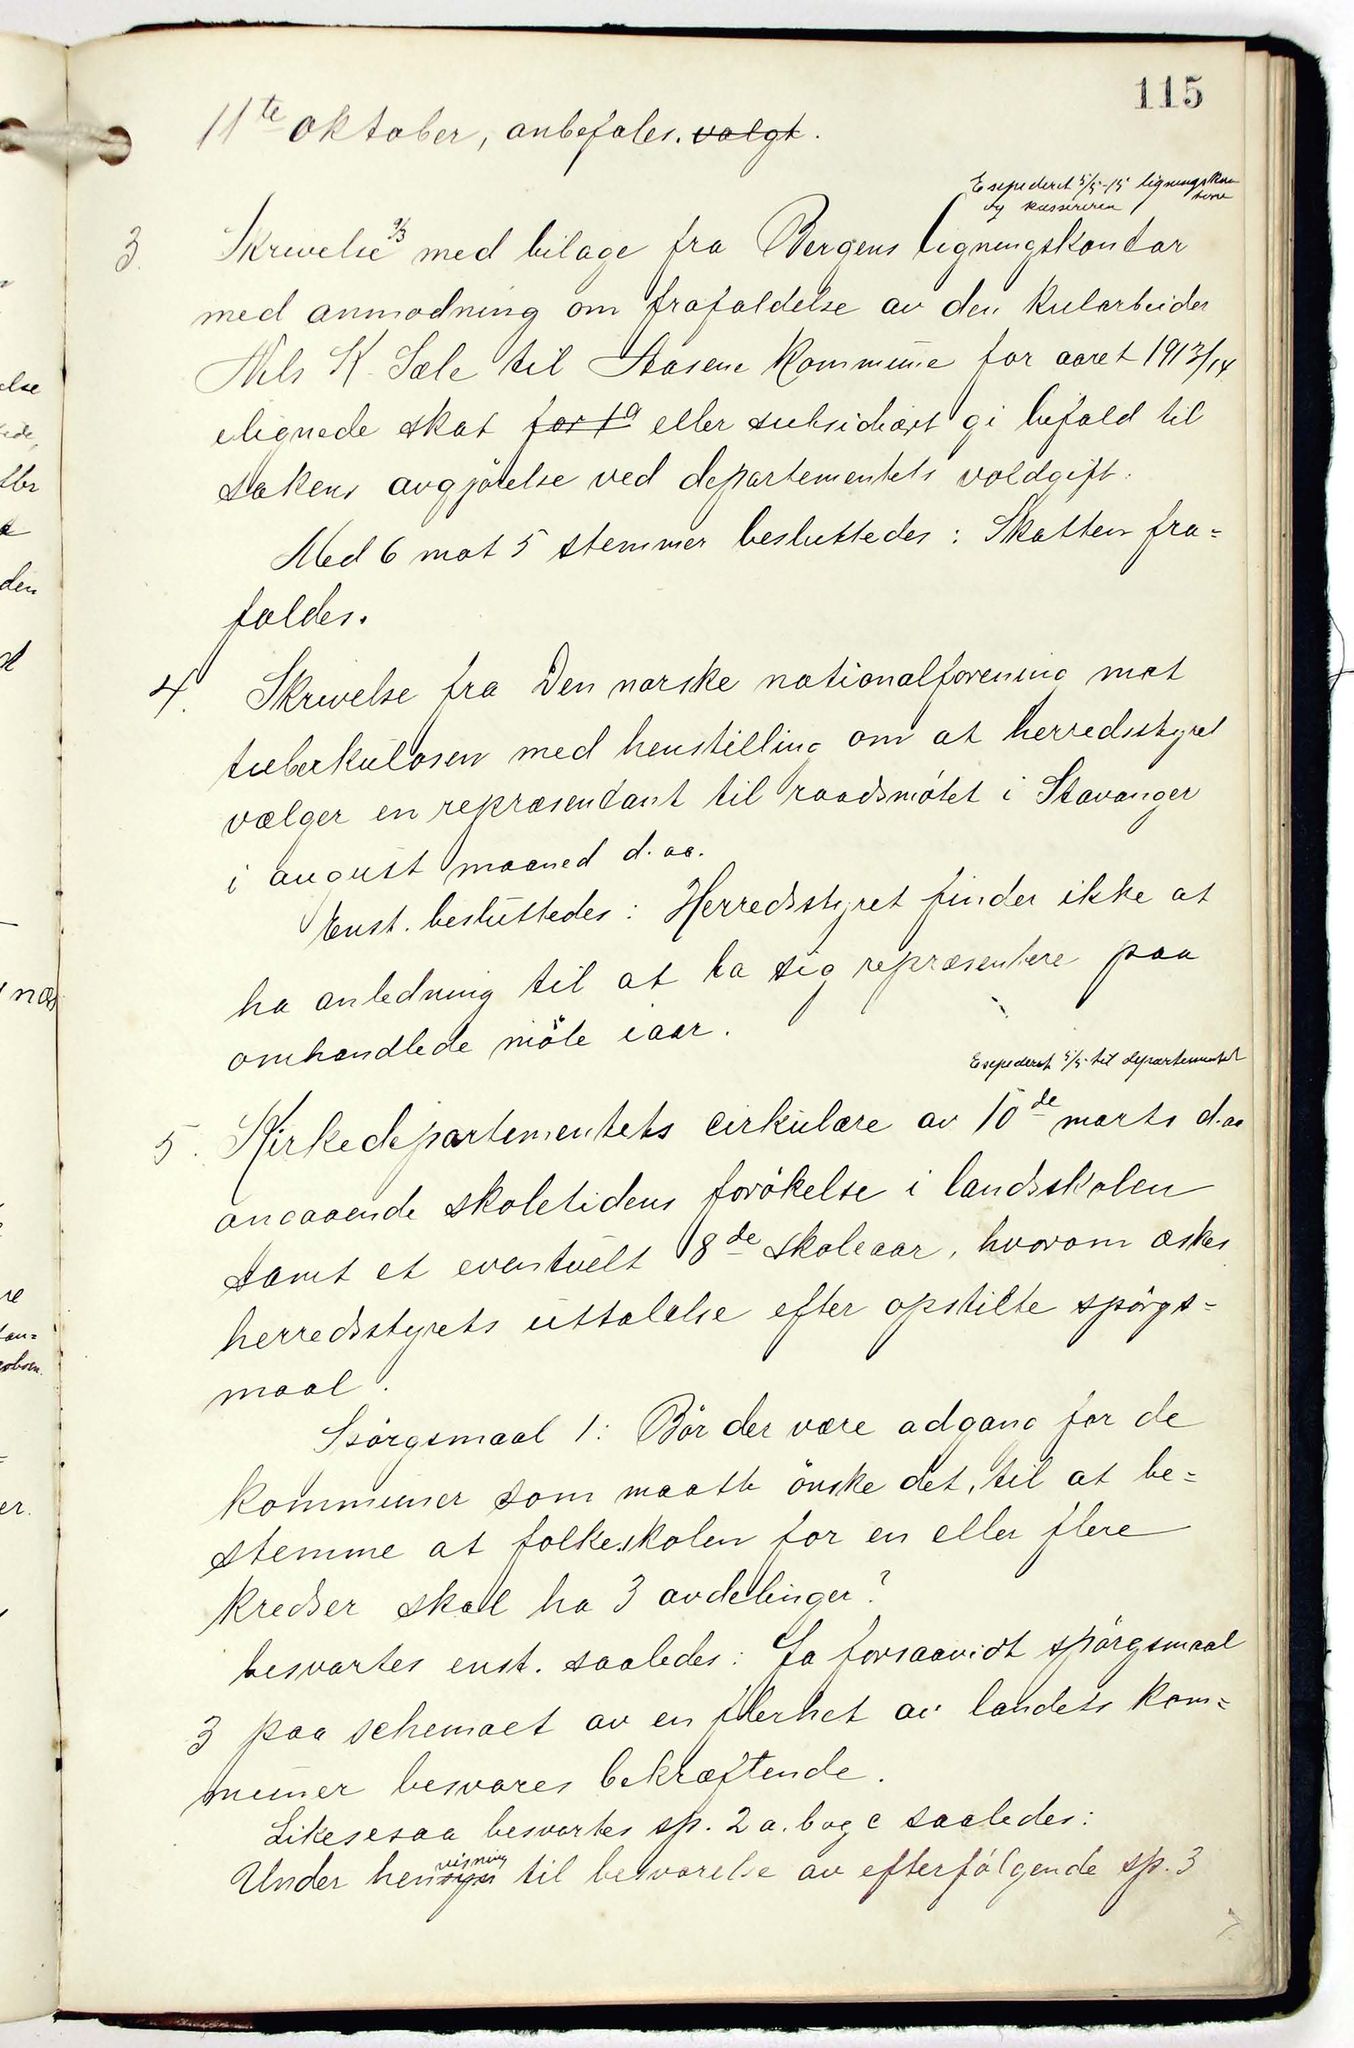 115
11te oktober, anbefales. valgt.
Expederet 5/5-15 ligningskon
tore
og kassereren
3. Skrivelse 9/3 med bilage fra Bergens ligningskontor
med anmodning om frafaldelse av den kularbeider
Nils K. Sæle til Aasene kommune for aaret 1913/14
ilignede skat for 19 eller subsidiært gi befald til
sakens avgjörelse ved departementets voldgift.
Med 6 mot 5 stemmer besluttedes: Skatten fra=
faldes.
4. Skrivelse fra Den norske nationalforening mot
tuberkulosen med henstilling om at herredsstyret
vælger en repræsentant til raadsmötet i Stavanger
i august maaned d.aa.
Enst. besluttedes: Herredsstyret finder ikke at
ha anledning til at la sig repræsentere paa
omhandlede möte iaar.
Expederet 5/5 til departementet
5. Kirkedepartementets cirkulære av 10de marts d.aa
angaaende skoletidens forökelse i landsskolen
samt et eventuelt 8de skoleaar, hvorom æskes
herredsstyrets uttalelse efter opstilte spörgs=
maal.
Spörgsmaal 1: Bör der være adgang for de
kommuner som maatte önske det, til at be=
stemme at folkeskolen for en eller flere
kredser skal ha 3 avdelinger?
besvartes enst. saaledes: Ja forsaavidt spörgsmaal
3 paa schemaet av en flerhet av landets kom=
muner besvares bekræftende.
Likesesaa besvartes sp. 2 a. b og c saaledes:
visning
Under hensyn til besvarelse av efterfölgende sp. 3